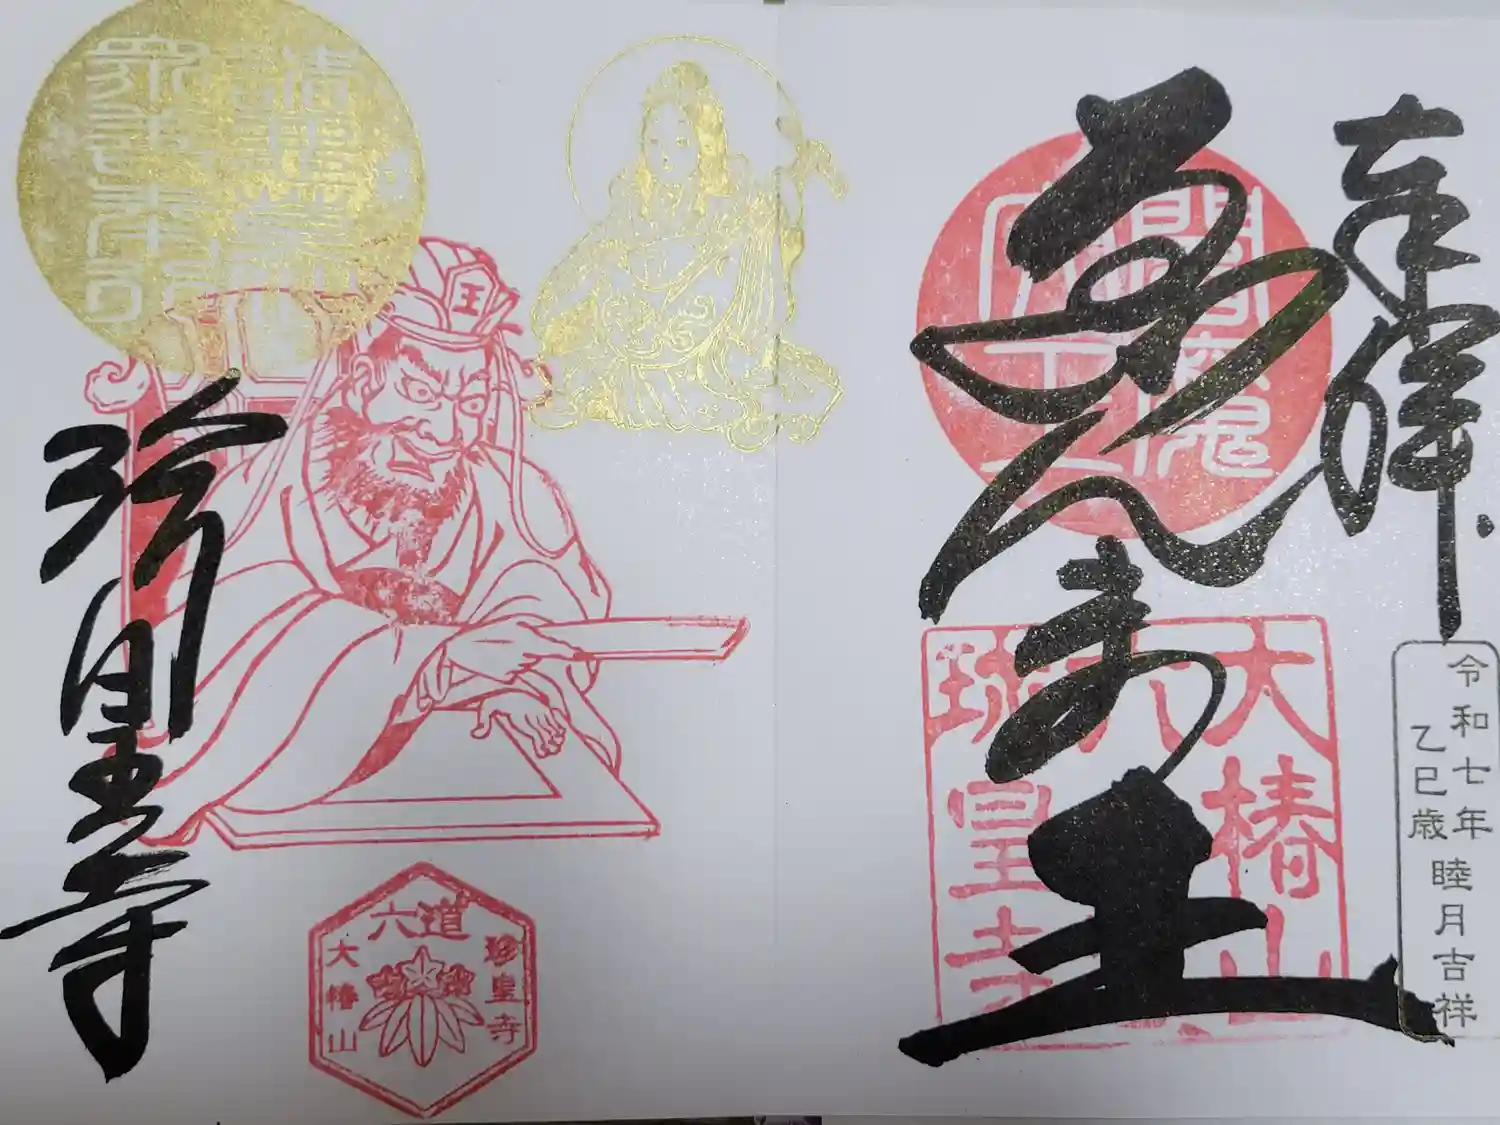 奉拝
令和七年
乙巳歳
睦月吉祥
ゑんま王
閻魔
大王
大椿山
六
珍皇寺
珍皇寺
王
六道
珍皇寺
大椿山